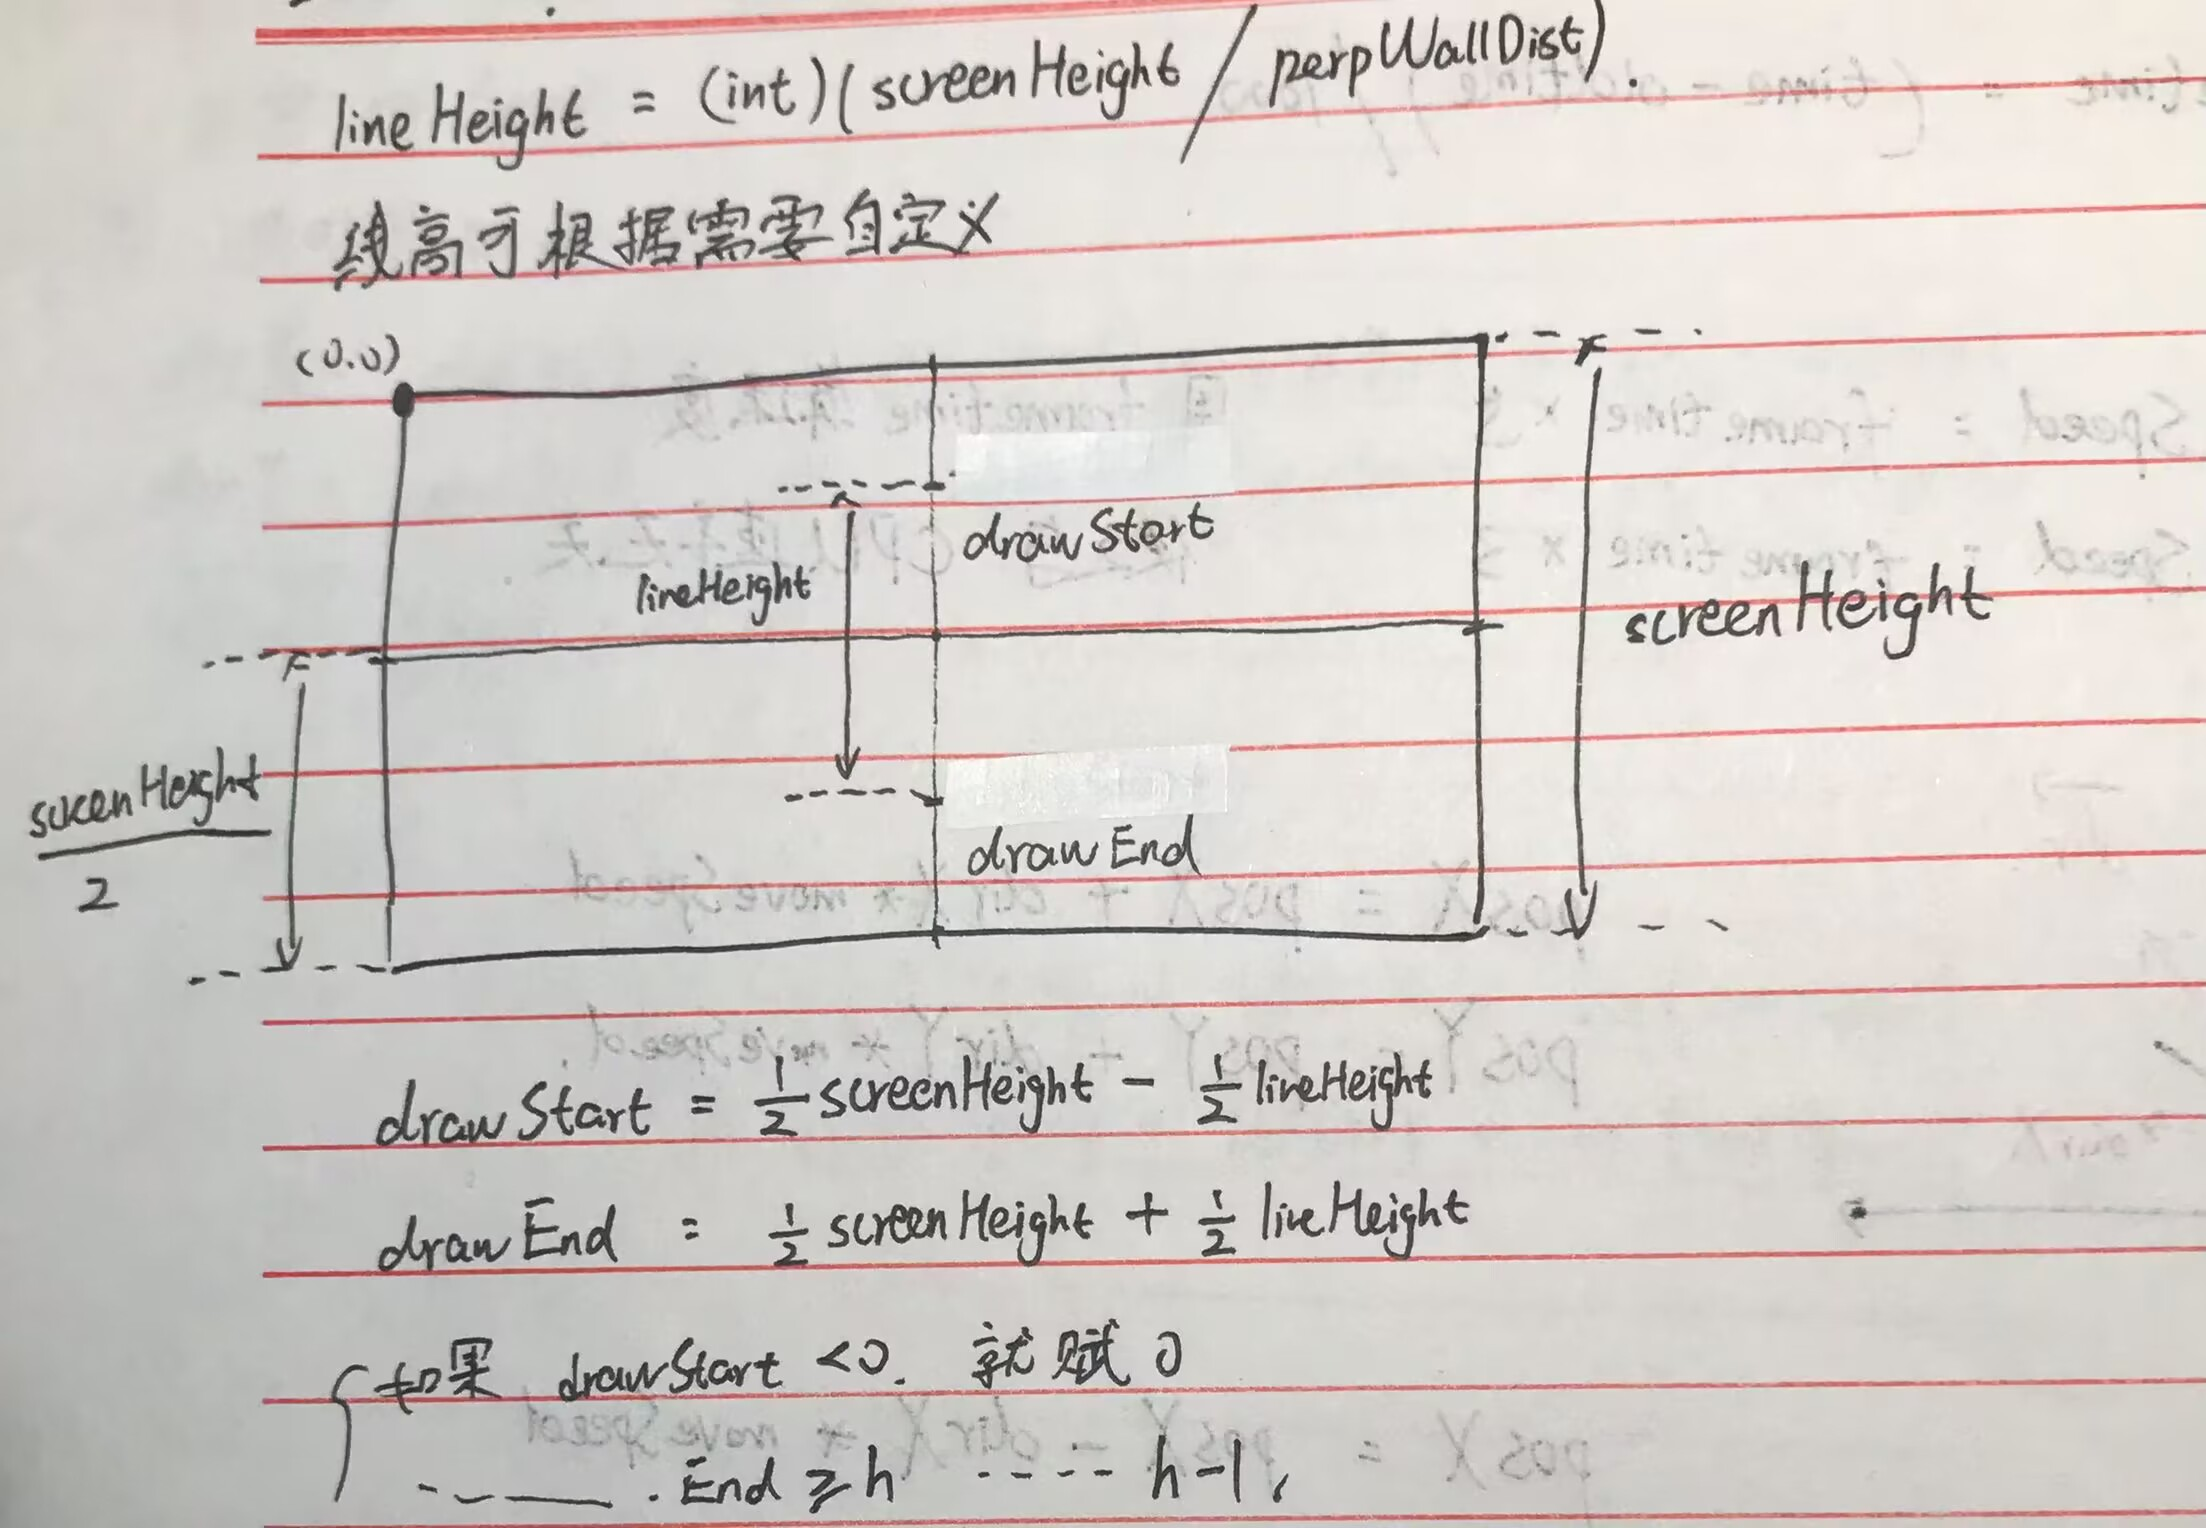 lineHeight = (int)(screenHeight / perpWallDist).
线高可根据需要自定义
(0.0)
drawStart
lineHeight
screenHeight
screenHeight
2
drawEnd
drawStart = 1/2 screenHeight - 1/2 lineHeight
drawEnd = 1/2 screenHeight + 1/2 lineHeight
如果 drawStart <0. 就赋 0
------. End ≥ h ---- h-1,